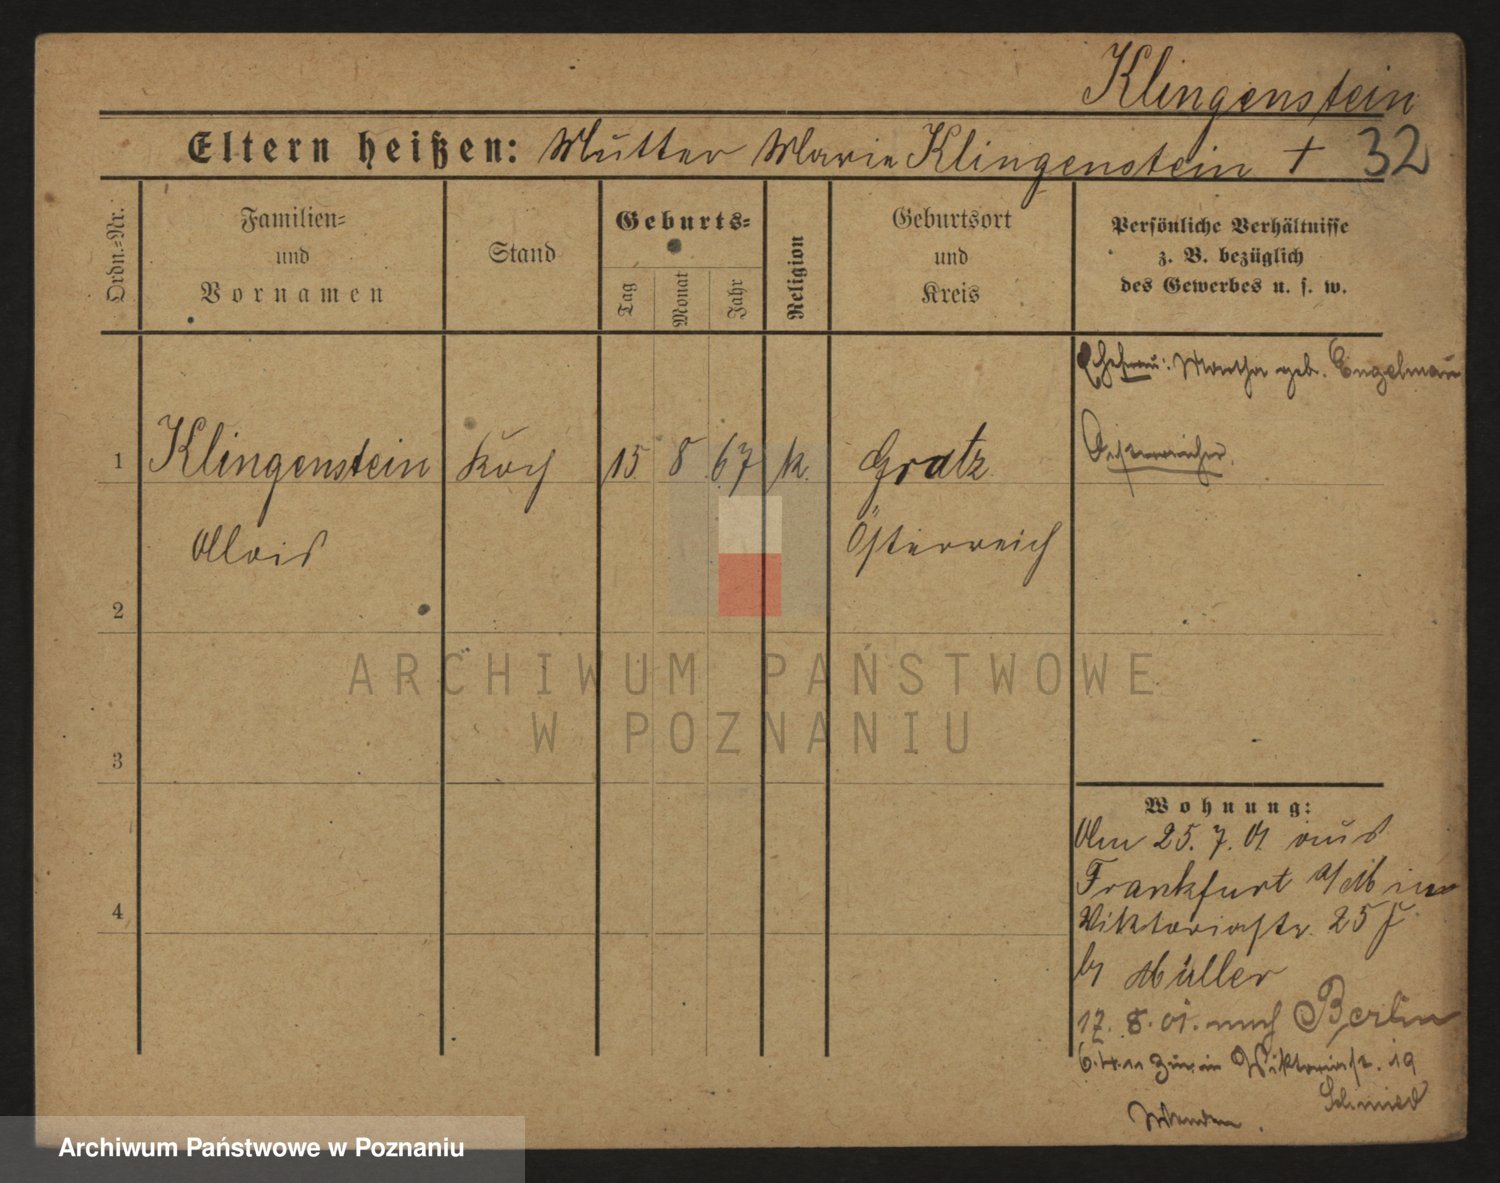 Klingenstein
Eltern heißen: Mutter Marie Klingenstein † 32
Ordn.=Nr.
Familien=
und
Vornamen
Stand
Geburts=
Tag
Monat
Jahr
Religion
Geburtsort
und
Kreis
Persönliche Verhältnisse
z. B. bezüglich
des Gewerbes u. s. w.
Ehefrau: Martha geb. Engelmann
1 Klingenstein Koch 15 8 67 k. Gratz
Oesterreicher.
Alois Österreich
2
3
4
ARCHIWUM PAŃSTWOWE
W POZNANIU
Wohnung:
Am 25. 7. 01 aus
Frankfurt a/M in
Viktoriastr. 25
b/ Müller
17. 8. 01. nach Berlin
6.4.11 Viktoriastr. 19
Schmied
Wenden.
Archiwum Państwowe w Poznaniu